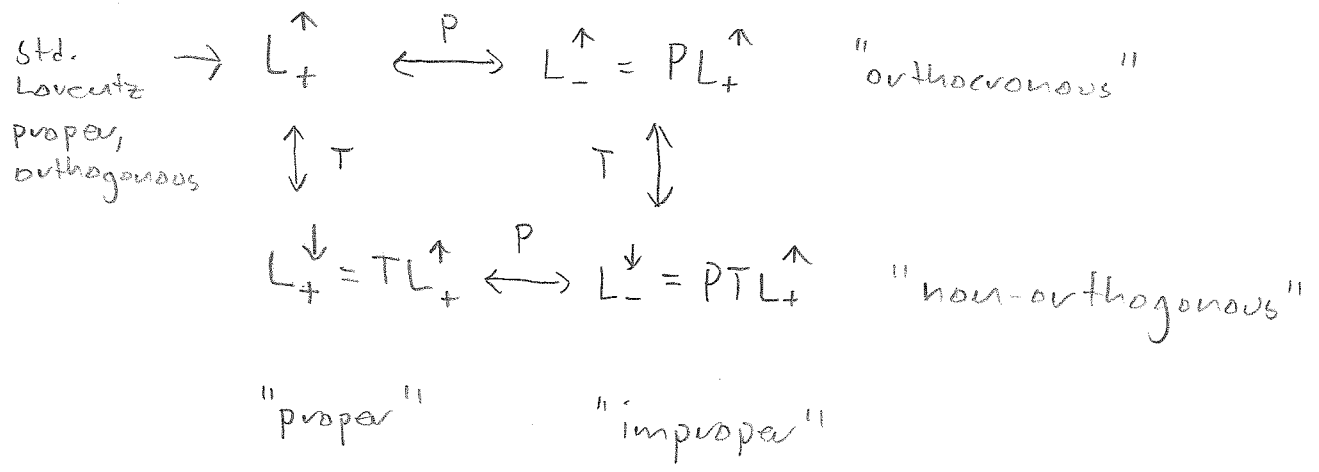 Std. Lorentz proper, orthogonous → L₊↑ ↔ P L₋↑ = PL₊↑ "orthocronous"
↕ T T ↕
L₊↓ = TL₊↑ ↔ P L₋↓ = PTL₊↑ "non-orthogonous"
"proper" "improper"